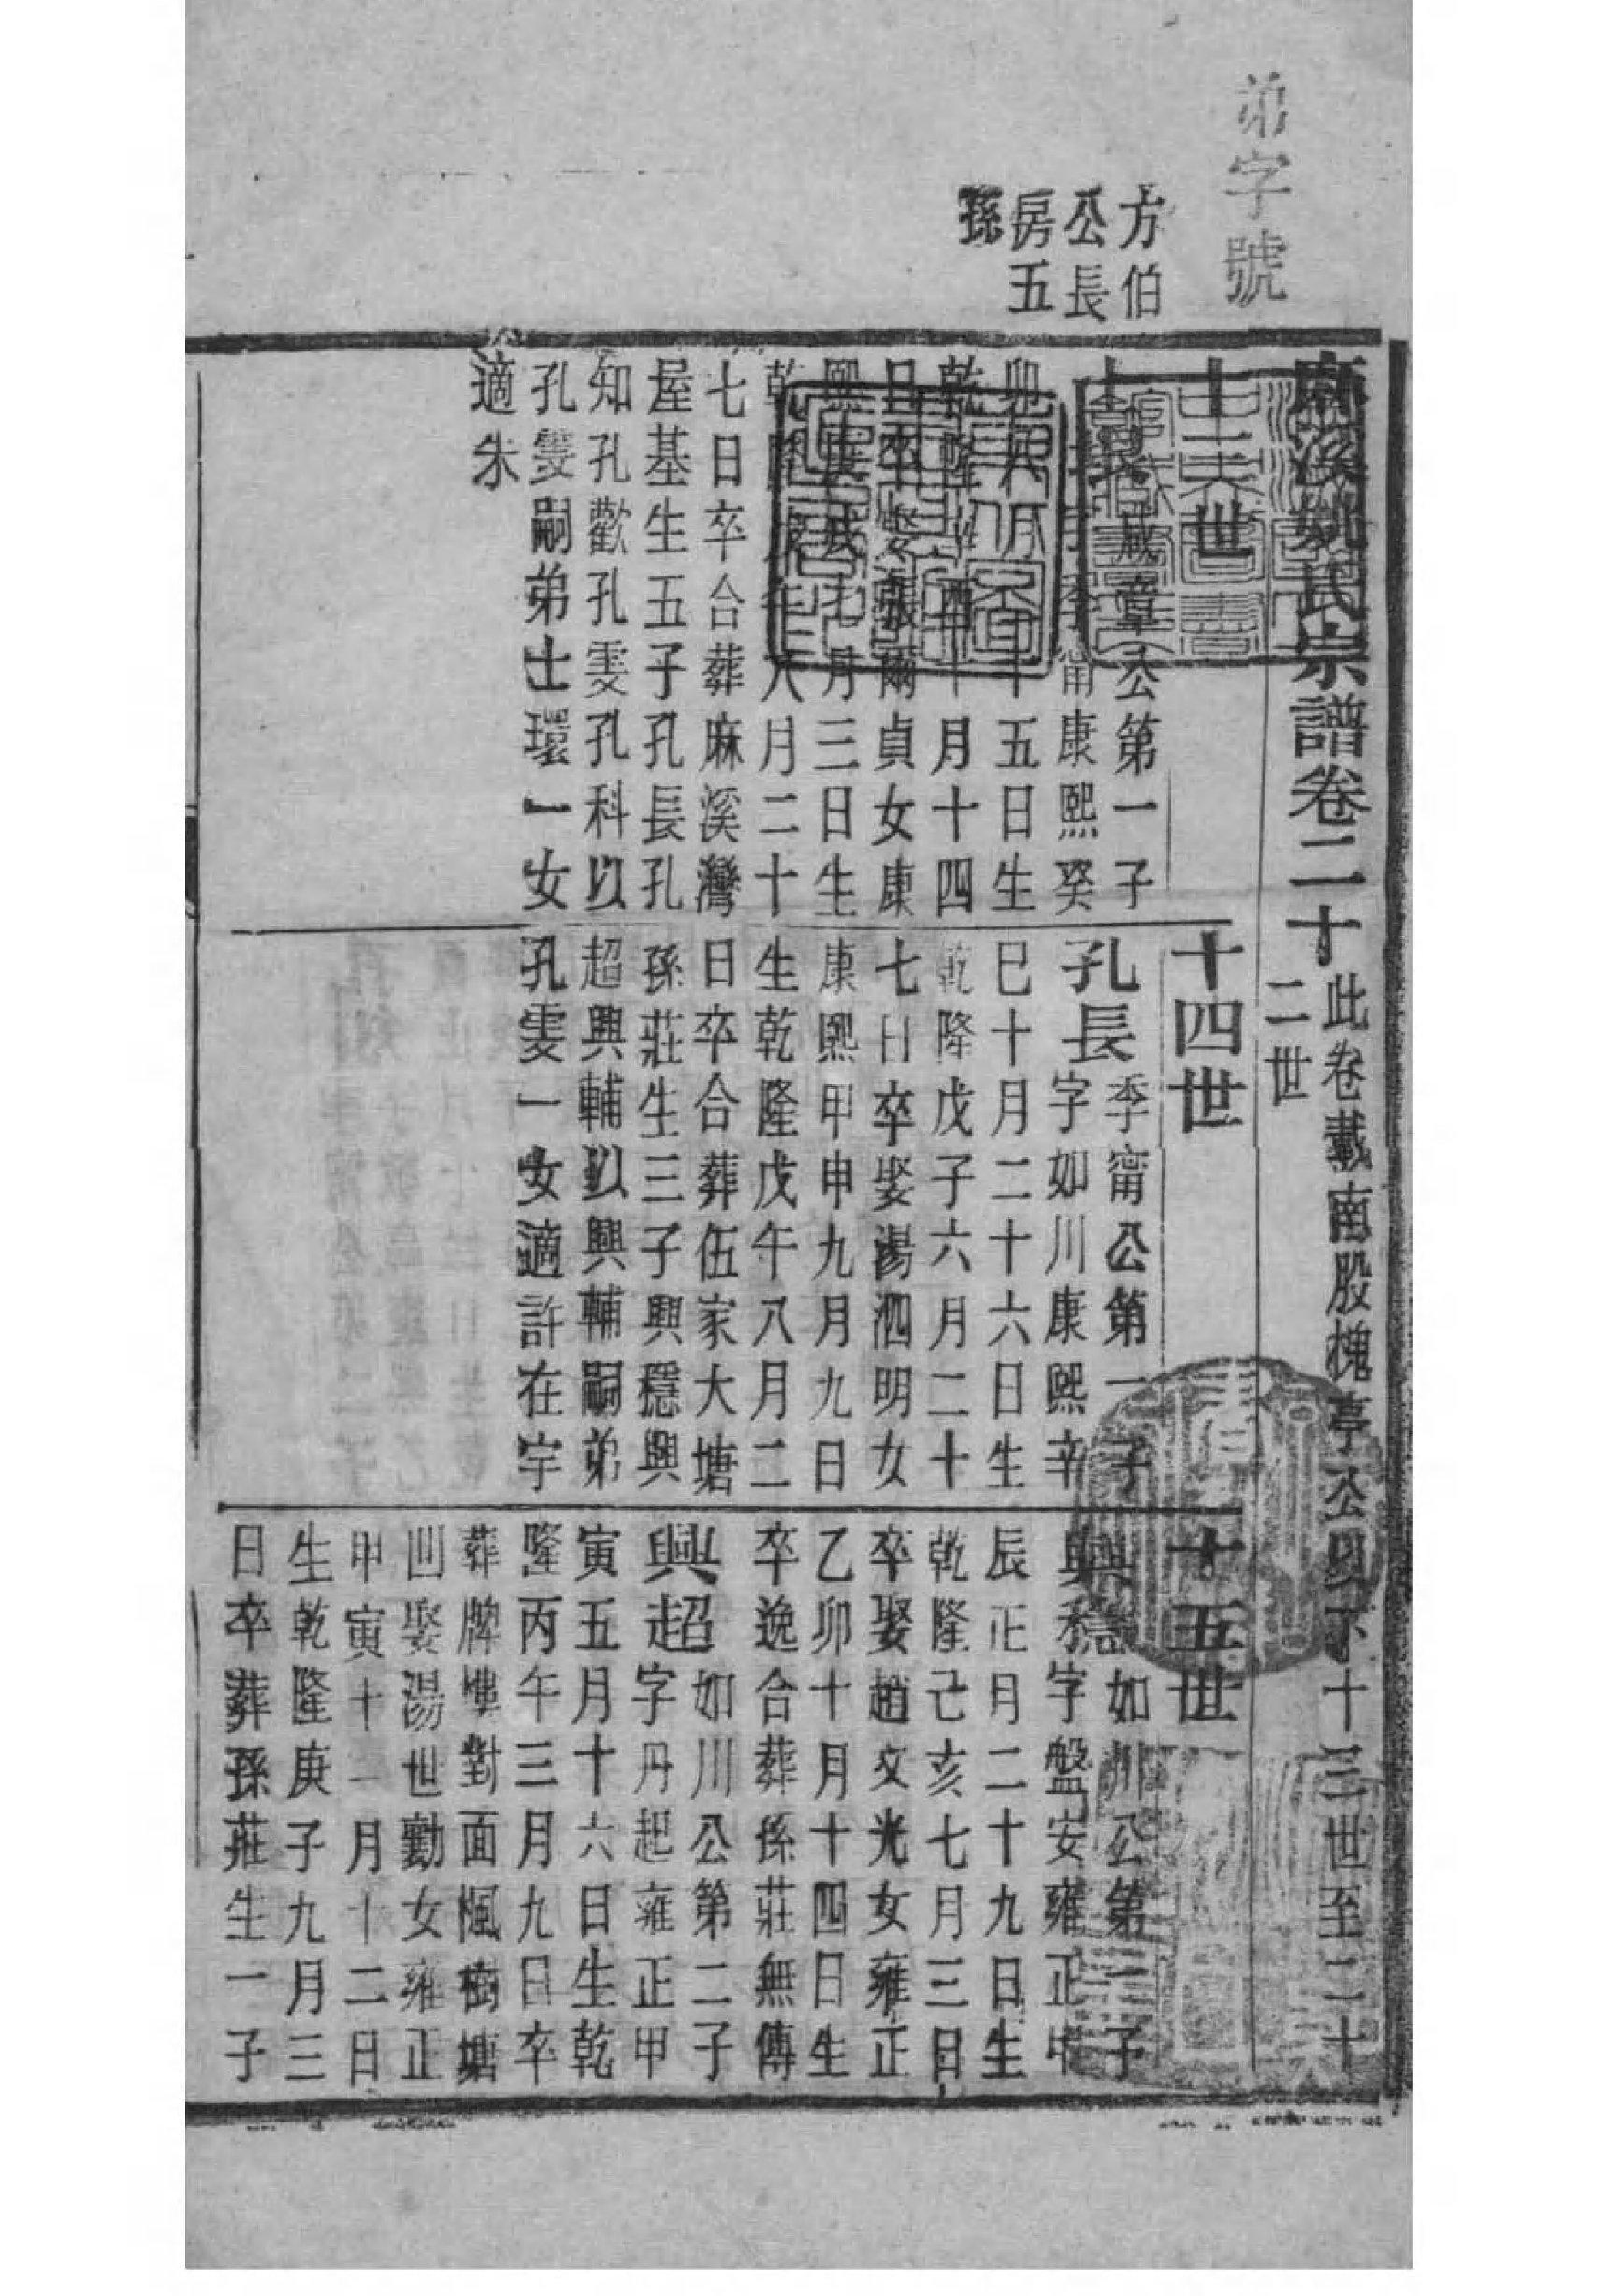 弟字號
方伯
公長
房五
孫
麻溪姚氏宗譜卷二十
此卷載南股槐亭公四下十三世至二十
二世
十三世
士 咸章公第一子
字季甯康熙癸
卯八月十五日生
乾隆 酉十一月十四
日卒娶張爾貞女康
熙 七月三日生
乾隆 年八月二十
七日卒合葬麻溪灣
屋基生五子孔長孔
知孔歡孔雯孔科以
孔雯嗣弟士環一女
適朱
十四世
孔長季甯公第一子
字如川康熙辛
巳十月二十六日生
乾隆戊子六月二十
七日卒娶湯泗明女
康熙甲申九月九日
生乾隆戊午八月二
日卒合葬伍家大塘
孫莊生三子興穩興
超興輔以興輔嗣弟
孔雯一女適許在宇
十五世
興穩如川公第一子
字盤安雍正甲
辰正月二十九日生
乾隆己亥七月三日
卒娶趙文光女雍正
乙卯十月十四日生
卒逸合葬孫莊無傳
興超如川公第二子
字丹起雍正甲
寅五月十六日生乾
隆丙午三月九日卒
葬牌樓對面楓樹塘
凹娶湯世勳女雍正
甲寅十一月十二日
生乾隆庚子九月三
日卒葬孫莊生一子